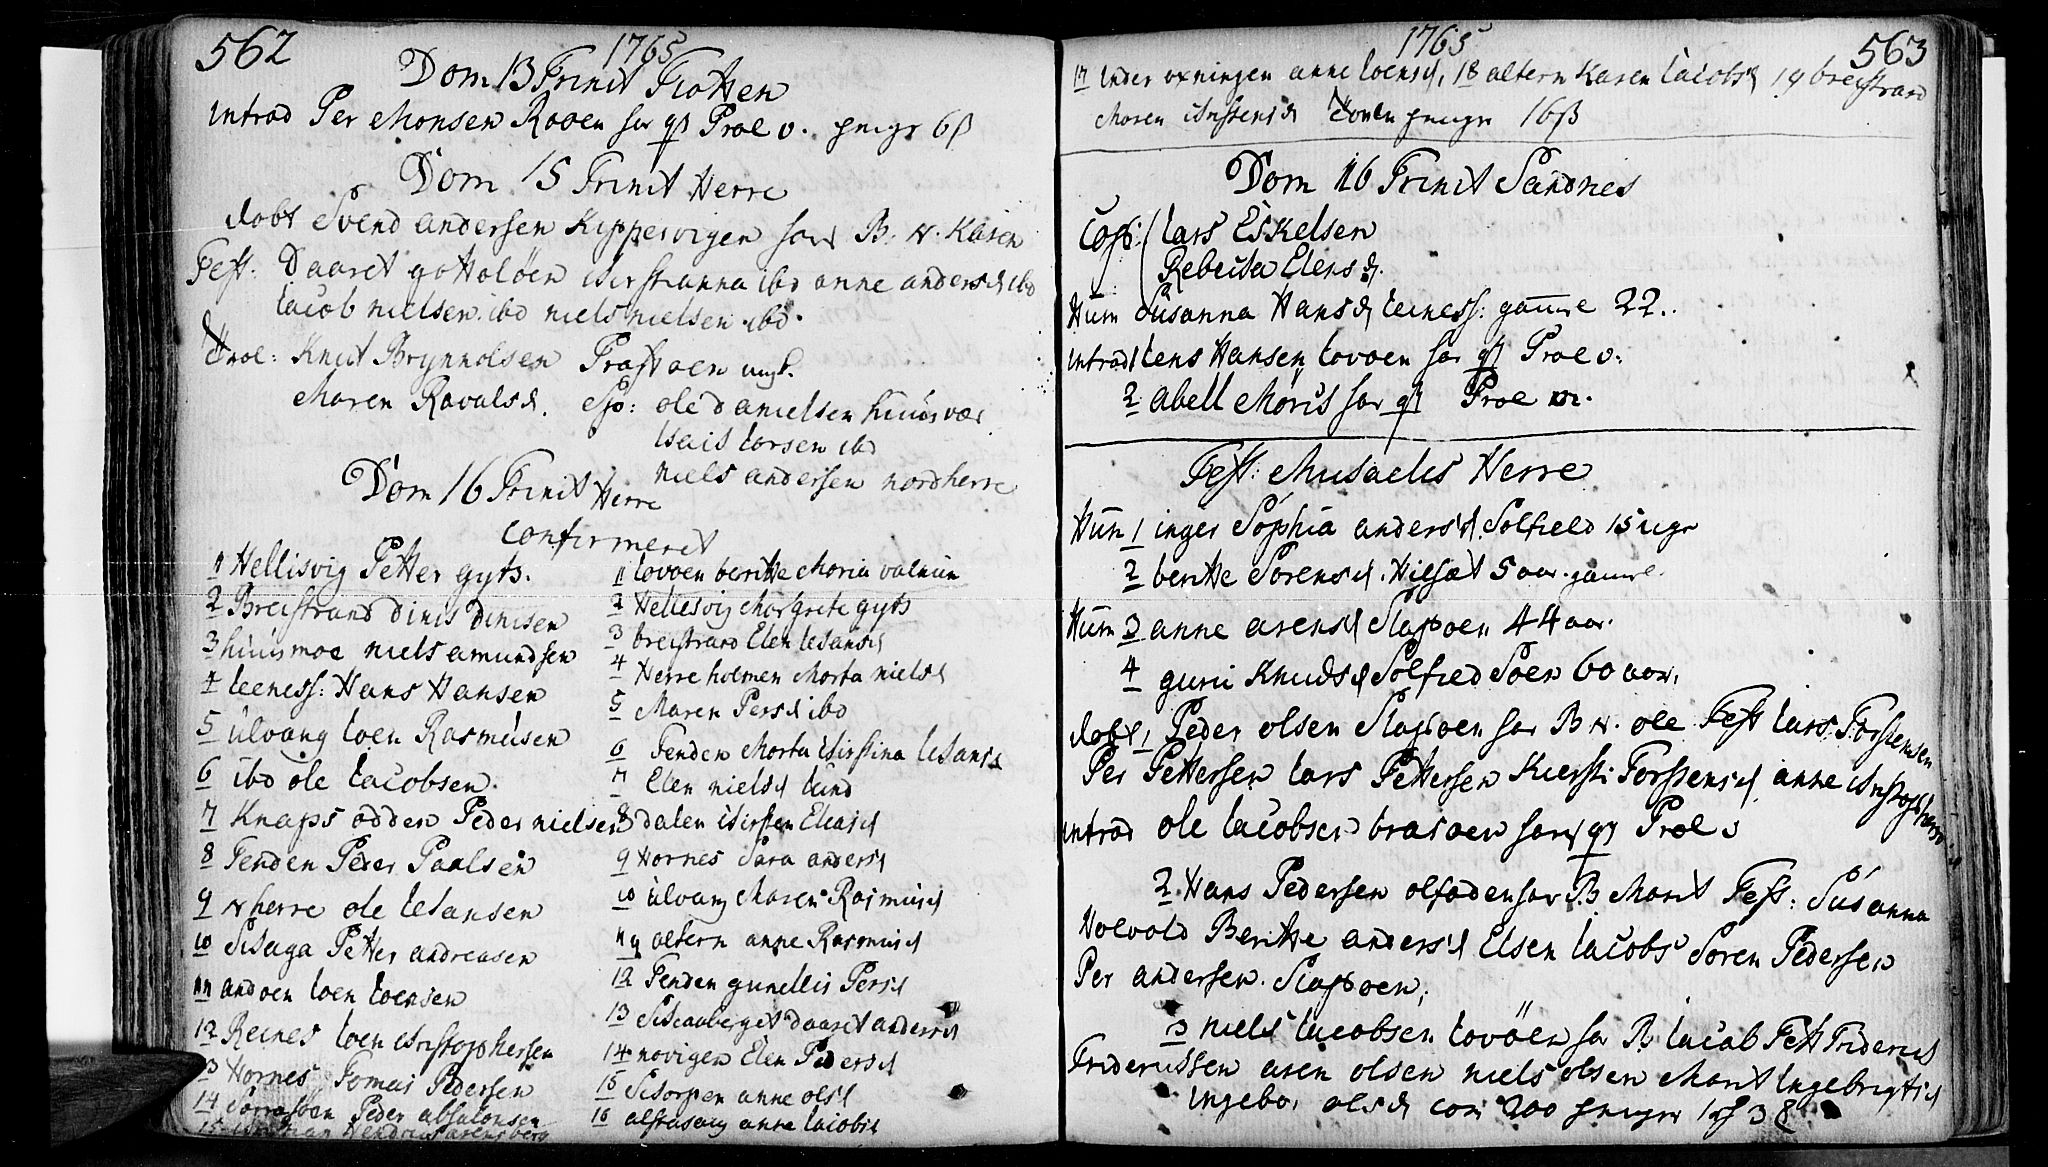 562
1765
Dom 13 Trinit Flotten
introd Per Monsen Rooen for q Proe v. penge 6 β
Dom 15 Trinit Herre
døbt Svend andersen Kippervigen for B. N. Karen
Test: Daaret gottoløen Kirstianna ibd anne andersd ibd
Iacob nielsen ibd niels nielsen ibd.
Troe: Knut Brynnolsen ungk.
Maren Rovalsd. Spo: ole danielsen huusvær
Isais Larsen ibd
niels andersen nordherre
Dom 16 Trinit Herre
confirmeret
1 Hellisvig Petter gyts.
2 Breistrand dinis dinisen
3 huusmoe niels amundsen
4 leeness: Hans Hansen
5 ulvang Ioen Rasmusen
6 ibd ole Iacobsen.
7 Knaps odden Peder nielsen
8 Tenden Peder Paalsen
9 N herre ole Isansen
10 Petter andreasen
11 andoen Ioen Ioensen
12 Reines Ioen Kristophersen
13 Hornes Tomas Pedersen
14 Peder absalonsen
15
1 Lovoen beritte Maria
2 Hellesvig Margrete gyts
3 breistrand Elen Isansd
4 Herre holmen Marta nielsd
5 Maren Persd ibd
6 Tenden Marta Kirstina Isansd
7 Elen nielsd lund
8 dalen Kirsten Eliasd
9 Hornes Sara andersd
10 ulvang Maren Rasmusd
11 altern anne Rasmusd
12 Tenden gunellis Persd
13 daaret andersd
14 novigen Elen Pedersd
15 anne olsd
16 anne Iacobsd
1765
563
17 Inder øxningen anne Ioensd, 18 altern Karen Iacobsd 19 breistrand
Maren penge 16 β
Dom 16 Trinit Sandnes
Cop: Lars Eskelsen
Rebecka Elensd.
Hum Susanna Hansd leiness: gamle 22..
introd Iens Hansen Lovoen for q Proe v.
2 abell Moris for q Proe
Fest: Michaelis Herre
Hum 1 inger Sophia andersd Solfield 15 uger
2 beritte Sorensd. Hilsæt 5 aar. gamel.
Hum 3 anne arensd Slapoen 44 aar.
4 guri Knudsd Solfied Soen 60 aar.
døbt 1 Peder olsen Slapoen for B N. ole Test Lars Torstensen
Per Pettersen Lars Pettersen Kiersti Torstensd anne
introd ole Iacobsen for q Proe v
2. Hans Pedersen for B Marit Test: Susanna
Holvold Beritte andersd Elsen Iacobs Soren Pedersen
Per andersen Slapoen,
3 niels Iacobsen Lovöen for B Iacob Test Friderich
Fridericssen aren olsen niels olsen Marit Ingebrigtsd
Ingebor olsd com 200 penger